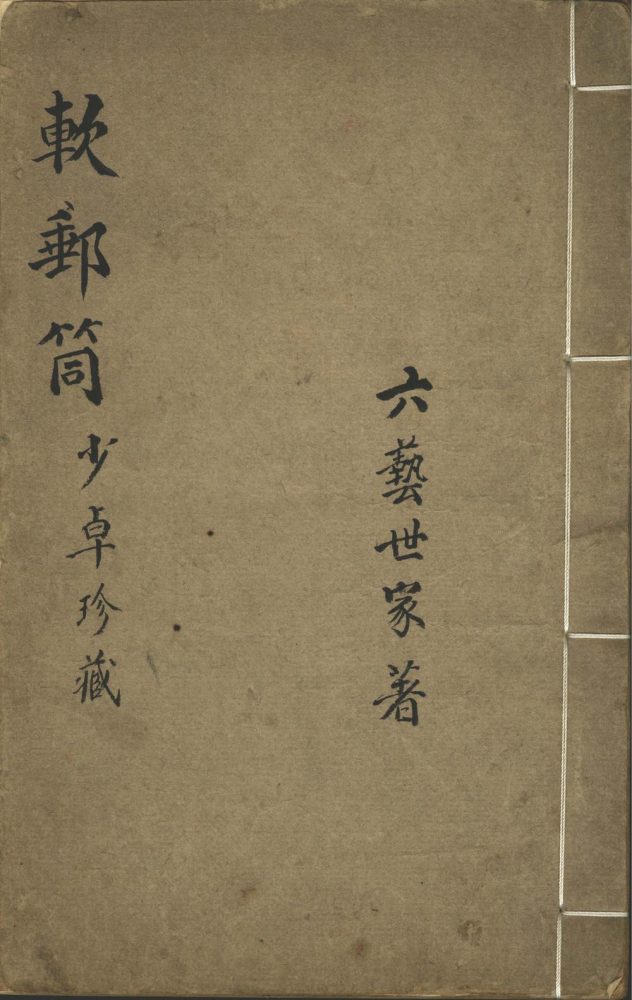 六藝世家著
軟郵筒 少卓珍藏